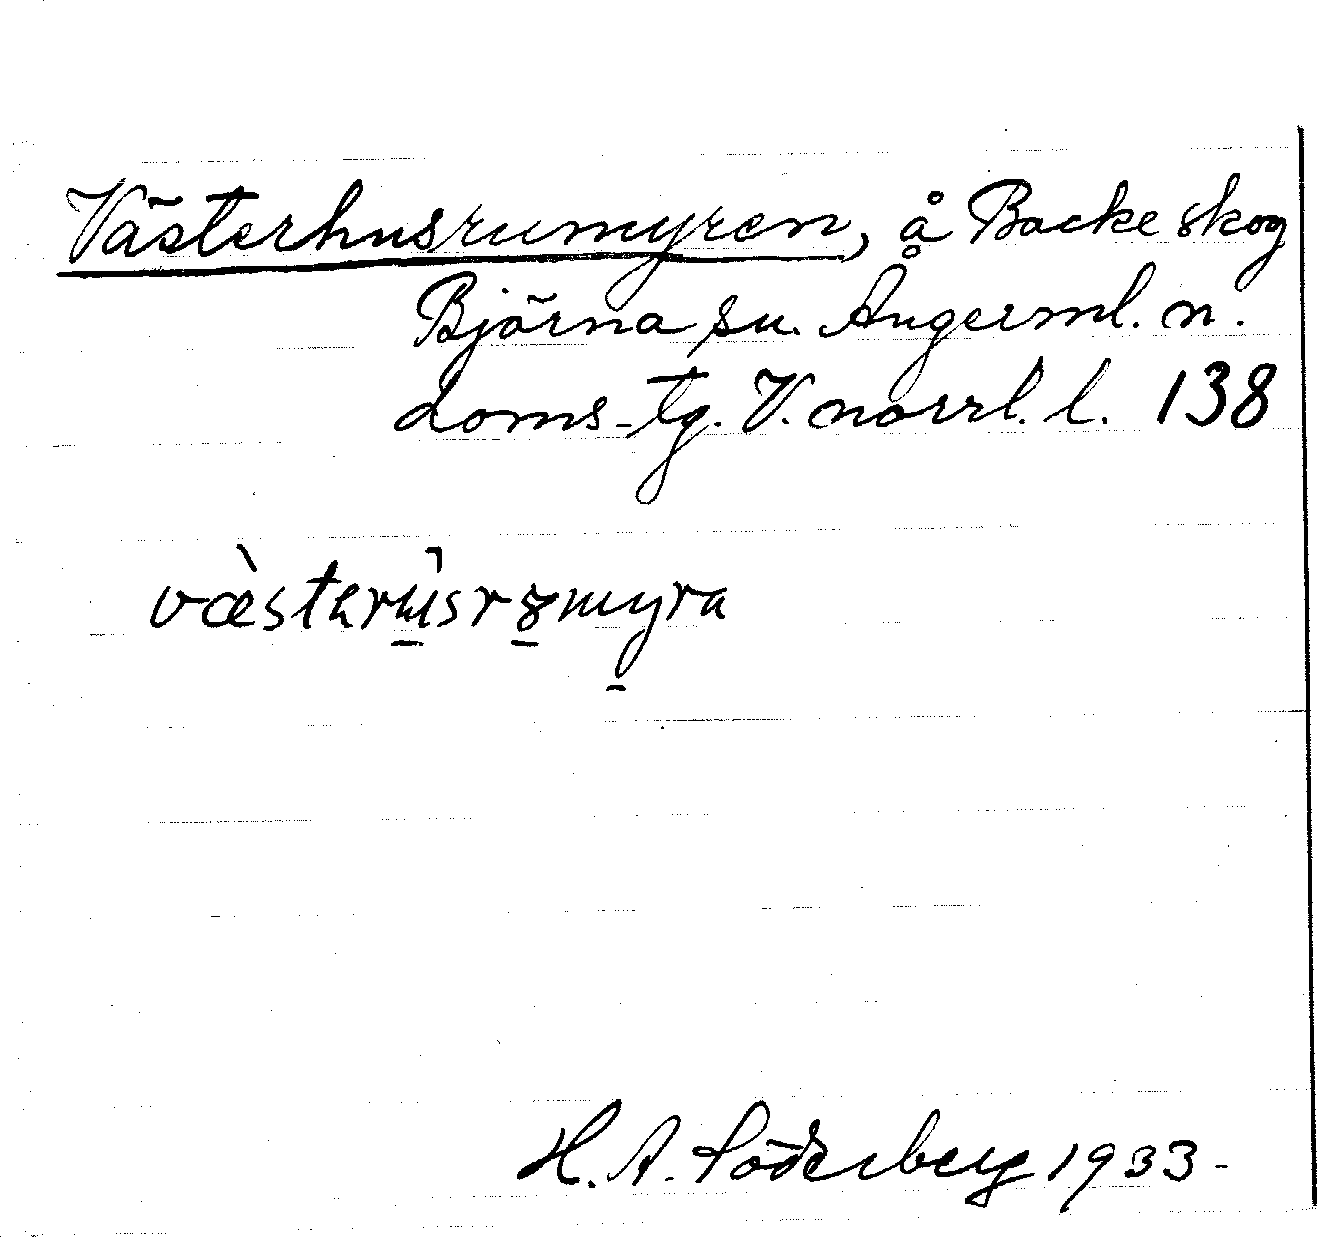 Västerhusrumyren, å Backe skog
Björna sn. Ångerml. n.
doms-tg. V. norrl. l. 138
væ̀staru̲̇sr8̲my̲ra
H. A. Söderberg 1933-